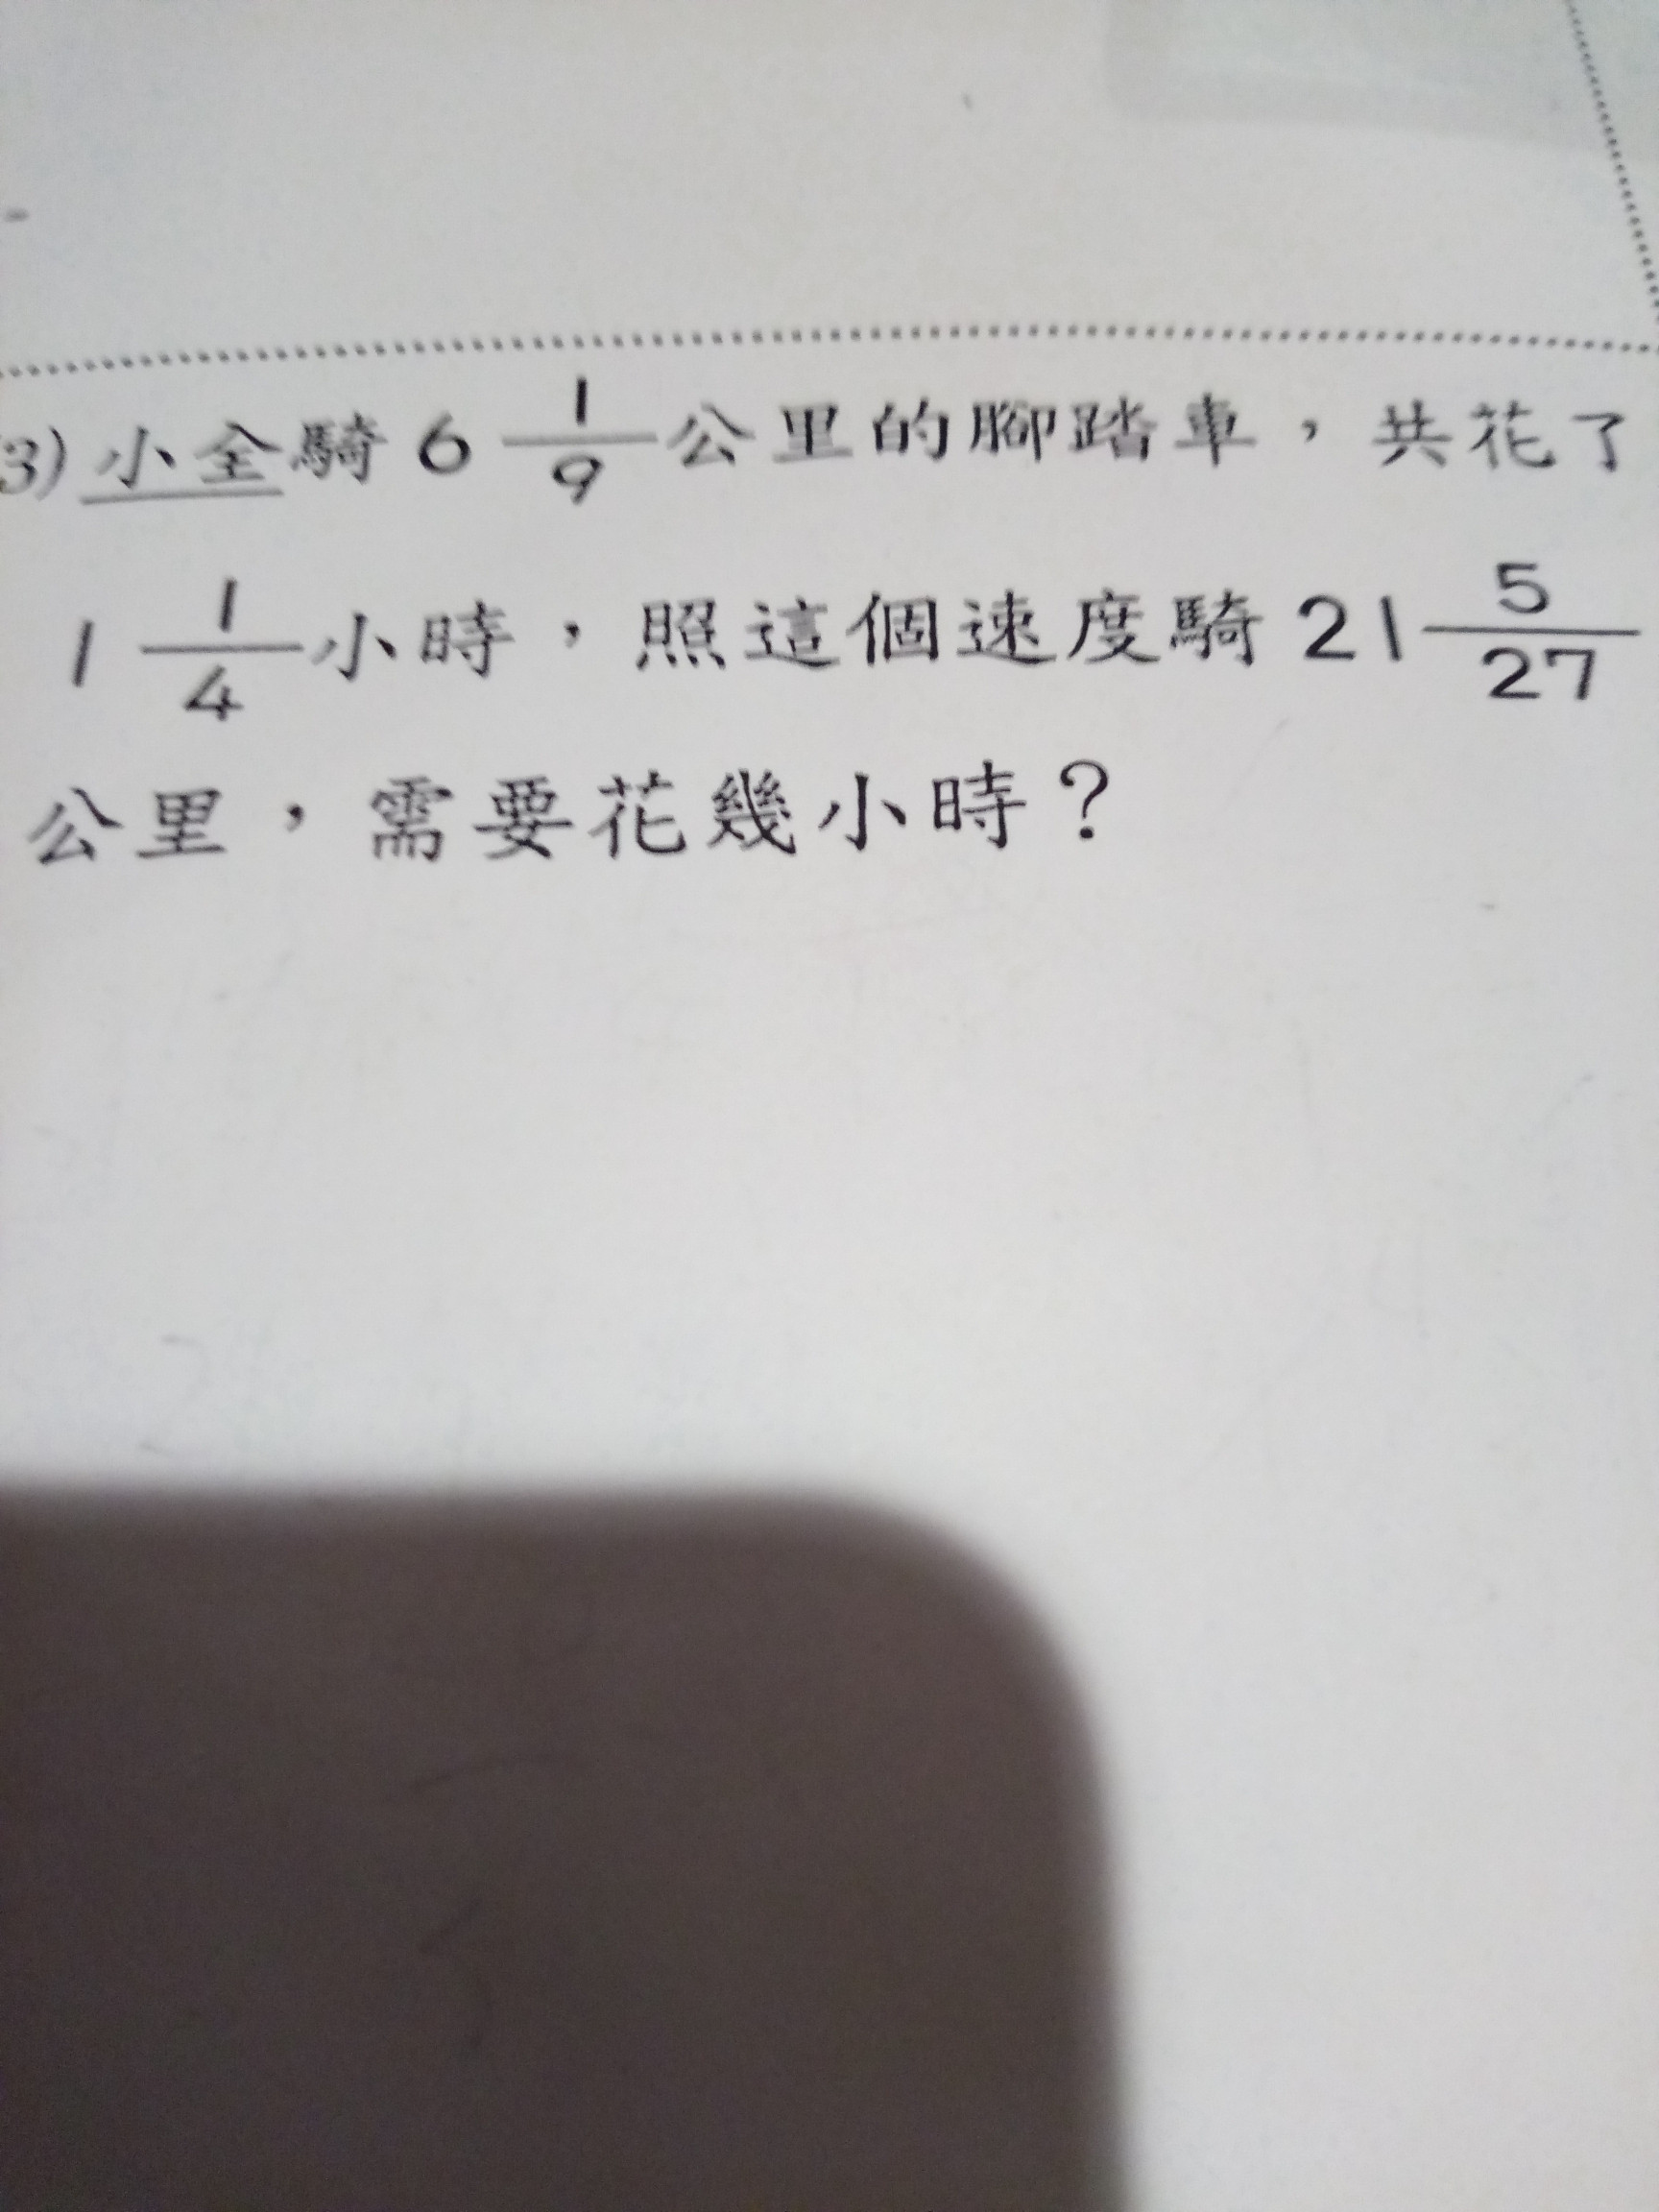 (3) 小全騎 6 1/9 公里的腳踏車，共花了
1 1/4 小時，照這個速度騎 21 5/27
公里，需要花幾小時？